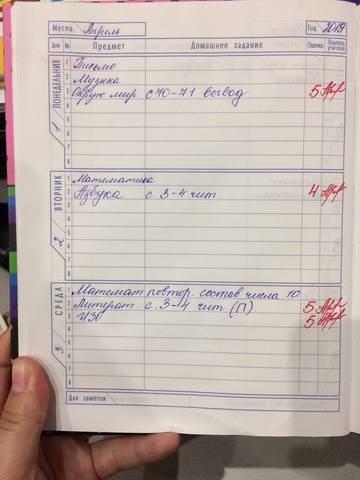 Месяц Апрель Год 2019
Дни № Предмет Домашнее задание Оценка Подпись учителя
ПОНЕДЕЛЬНИК 1
1 Письмо
2 Музыка
3 Окруж мир с 70-71 вывод 5
4
5
6
7
8
ВТОРНИК 2
1 Математика
2 Азбука с. 3-4 чит. 4
3
4
5
6
7
8
СРЕДА 3
1 Математ повтор. состав числа 10
2 Литерат с. 3-4 чит (П) 5
3 ИЗО 5
4
5
6
7
8
Для заметок